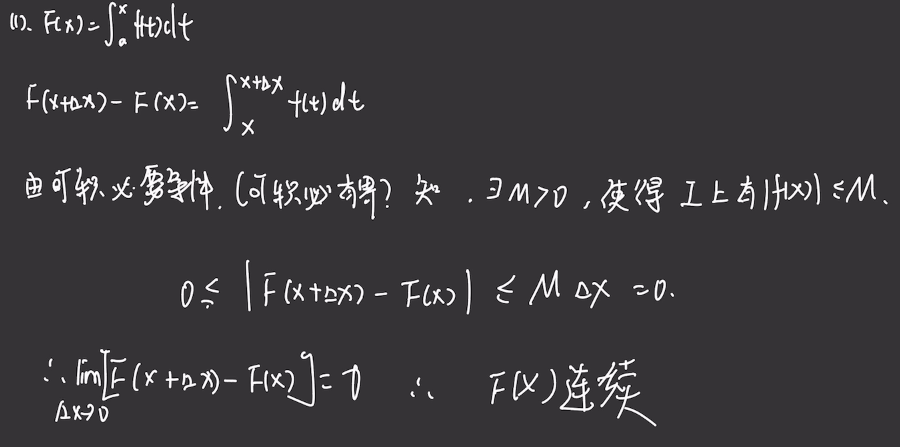 (1). F(x)=∫ₐˣ f(t)dt
F(x+Δx)-F(x)= ∫ₓˣ⁺ᐞˣ f(t)dt
由可积必要条件.(可积必有界?知.∃M>0,使得I上有|f(x)|≤M.
0≤|F(x+Δx)-F(x)|≤MΔx=0.
∴lim[F(x+Δx)-F(x)]=0 ∴ F(x)连续
Δx→0